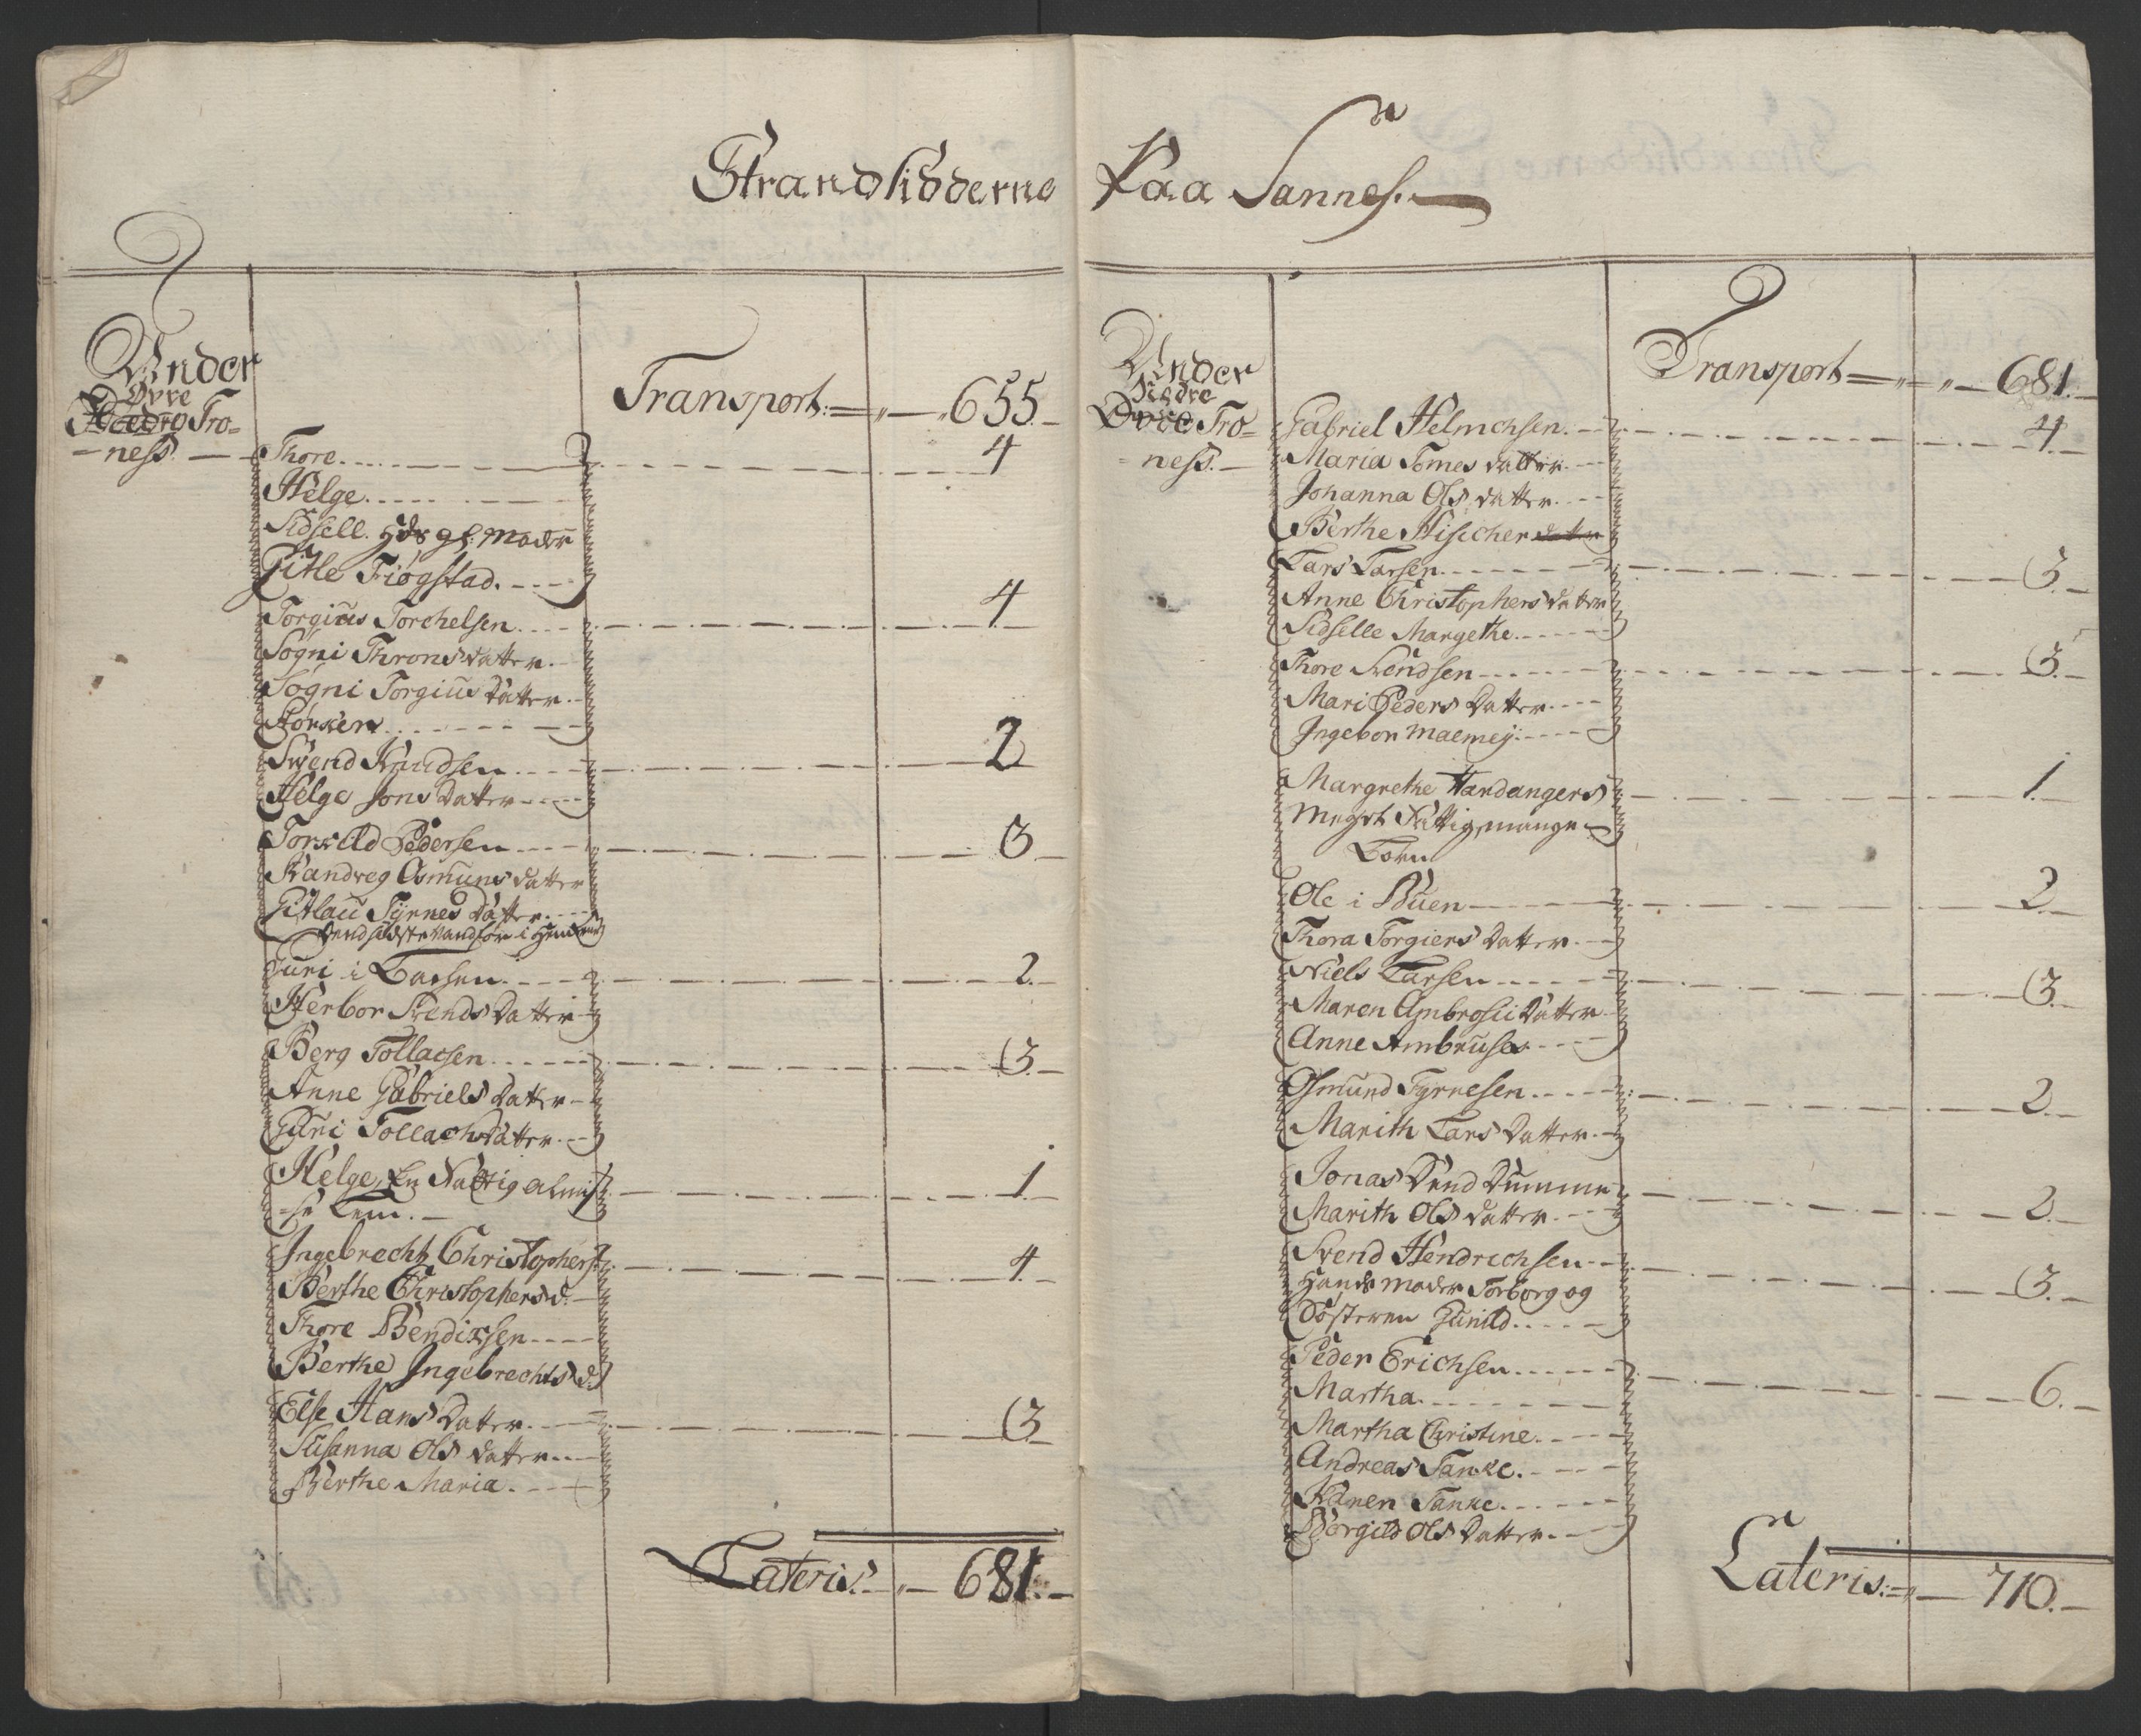 Strandsidderne Paa Sannes.
Under
Øvre
Needre Tro=
=ness.
Transport: 655.
Thore. 4
Helge.
Sidsell. Hds gl: Moder
Gitle Fiogstad.
Torgius Torchelsen. 4
Sögni Throns datter.
Sögni Torgius Datter.
Torken.
Svend Knudsen. 2
Helge Jons Datter
Torkild Pedersen 3
Randveg Osmuns datter
Gitlau Tyrnes Datter.
Guri i Backen. 2.
Herbor Svends Datter
Berg Tollacsen. 3.
Anne Gabriels Datter
Guri Tollachs Datter.
Helge, En Fattig almis= 1.
=se Lem.
Ingebrecht Christophers: 4.
Berthe Christophers d.
Thore Bendixsen
Berthe Ingebrechts d.
Else Hans Datter. 3.
Susanna Ols datter
Berthe Maria.
Lateris. 681.
Under
Nedre
Øvre Tro=
=ness.
Transport 681.
Gabriel Helmchsen. 4.
Maria Tomes datter.
Johanna Ols datter.
Berthe Hischer datter
Lars Larsen. 3.
Anne Christophers datter
Sidselle Margethe.
Thore Svendsen 3.
Mari Peders Datter
Ingebor Maemey.
Margrethe Hardangers 1.
Meget Fattig, mange
Börn
Ole i Buen 2.
Thora Torgiers Datter.
Niels Larsen 3.
Maren Ambrosii Datter
Anne Ambruses
Osmund Tyrnesen. 2.
Marith Lars Datter.
Jonas Dend Dumme 2.
Marith Ols datter.
Svend Hendrichsen 3.
Hands Moder Torborg og
Søsteren Gunild.
Peder Erichsen 6.
Martha.
Martha Christine.
Andreas Tanke.
Karen Tanke.
Borgild Ols Datter.
Lateris: 710.